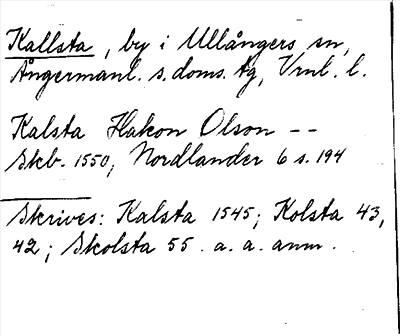 Kallsta, by i Ullångers sn,
Ångermanl. s. doms. tg, Vrnl. l.
Kalsta Hakon Olson --
Skb. 1550, Nordlander 6 s. 194
Skrives: Kalsta 1545; Kolsta 43,
42; Skolsta 55. a. a. anm.